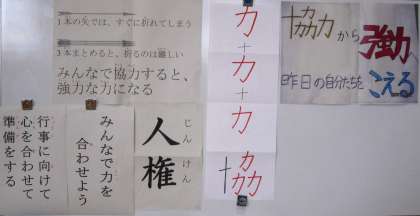 1本の矢では、すぐに折れてしまう
3本まとめると、折るのは難しい
みんなで協力すると、
強力な力になる
行事に向けて
心を合わせて
準備をする
みんなで力を
合わせよう
人権
じん
けん
力
+
力
+
力
十
力
力力
協力から
強力
昨日の自分たちを
こえる